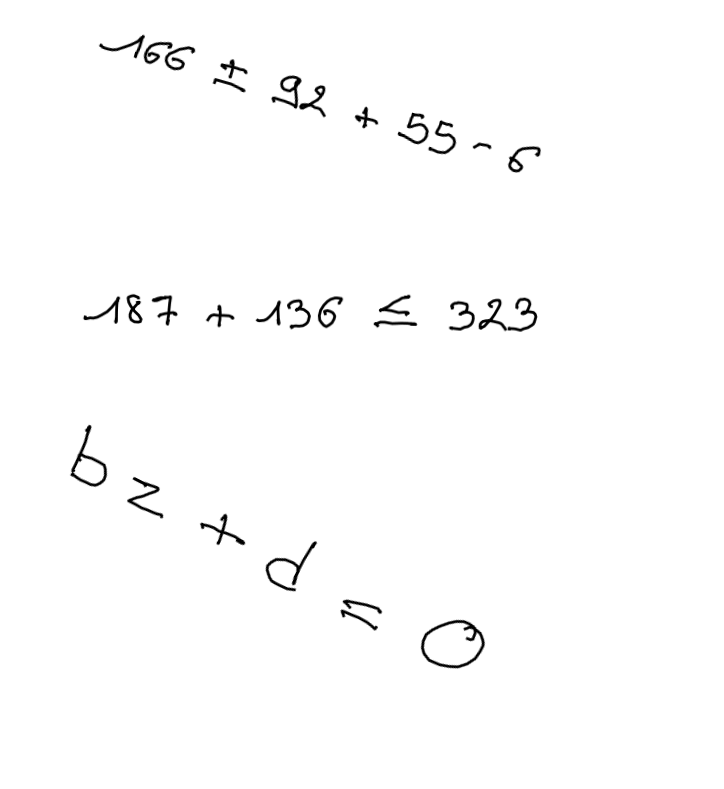 166 ± 92 + 55 - 6
187 + 136 ≤ 323
bz + d = 0